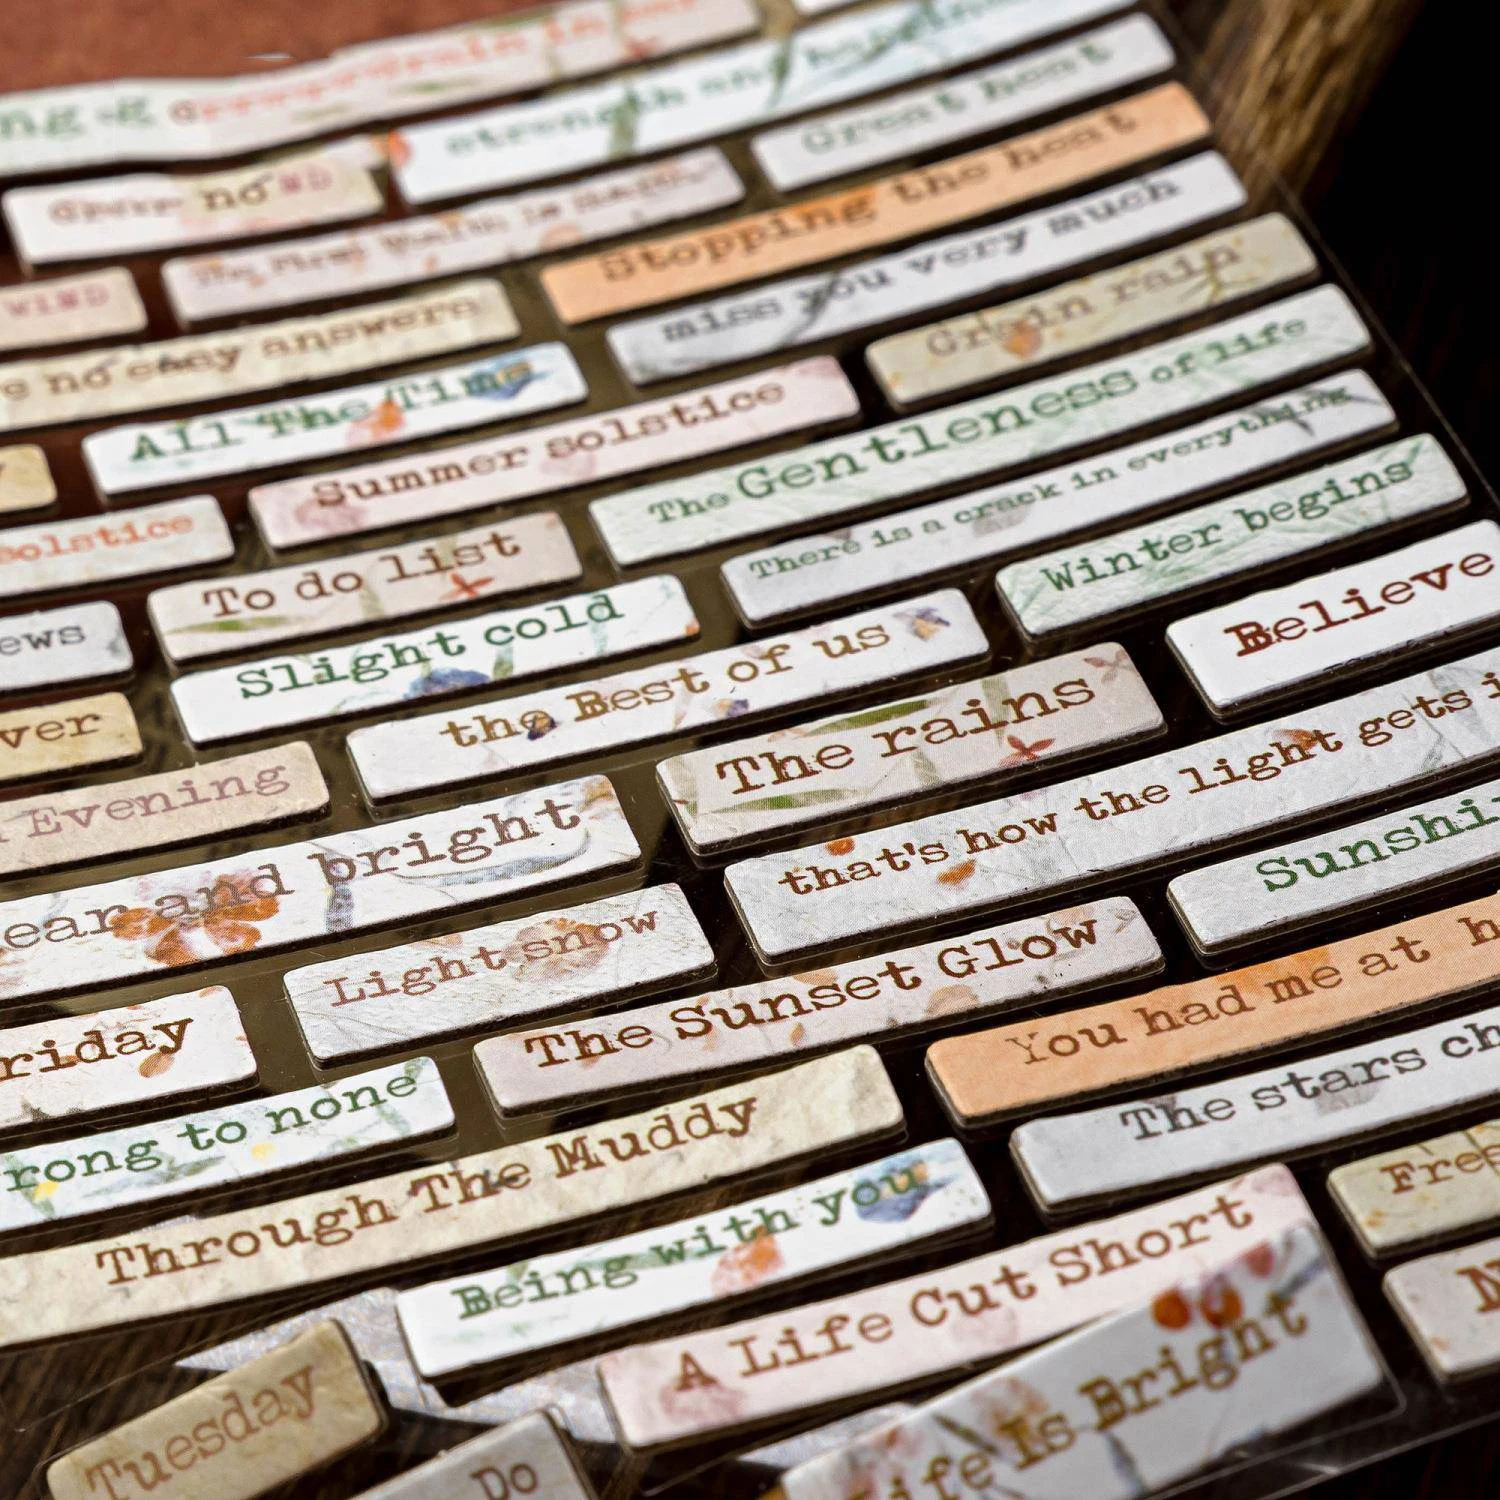 strength and
Great heat
no
Stopping the heat
WIND
miss you very much
no easy answers
Grain rain
All The Time
Summer solstice
The Gentleness of life
There is a crack in everything
solstice
To do list
Winter begins
Believe
ews
Slight cold
the Best of us
ver
The rains
that's how the light gets i
Evening
Sunshi
ear and bright
Light snow
The Sunset Glow
You had me at h
riday
The stars ch
rong to none
Through The Muddy
Fres
Being with you
A Life Cut Short
N
Life Is Bright
Tuesday
Do